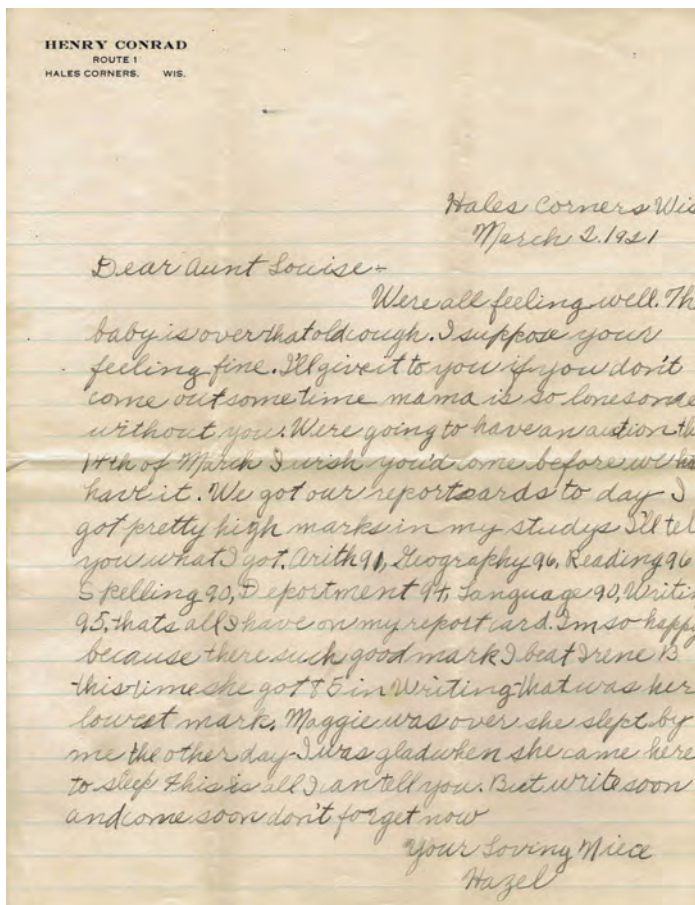 HENRY CONRAD
ROUTE 1
HALES CORNERS, WIS.
Hales Corners Wis
March 2. 1921
Dear Aunt Louise-
Were all feeling well. Th
baby is over that old cough. I suppose your
feeling fine. I'll give it to you if you don't
come out sometime mama is so lonesome
without you. Were going to have an auction the
14th of March I wish you'd come before we
have it. We got our reportcards to day I
got pretty high marks in my studys I'll tel
you what I got. Arith 91, Geography 96, Reading 96
Spelling 90, Deportment 94, Language 90, Writin
95, thats all I have on my report card. I'm so happy
because there such good mark I beat Irene B
this time she got 85 in Writing that was her
lowest mark. Maggie was over she slept by
me the other day I was glad when she came here
to sleep this is all I can tell you. But write soon
and come soon don't forget now
Your Loving Niece
Hazel